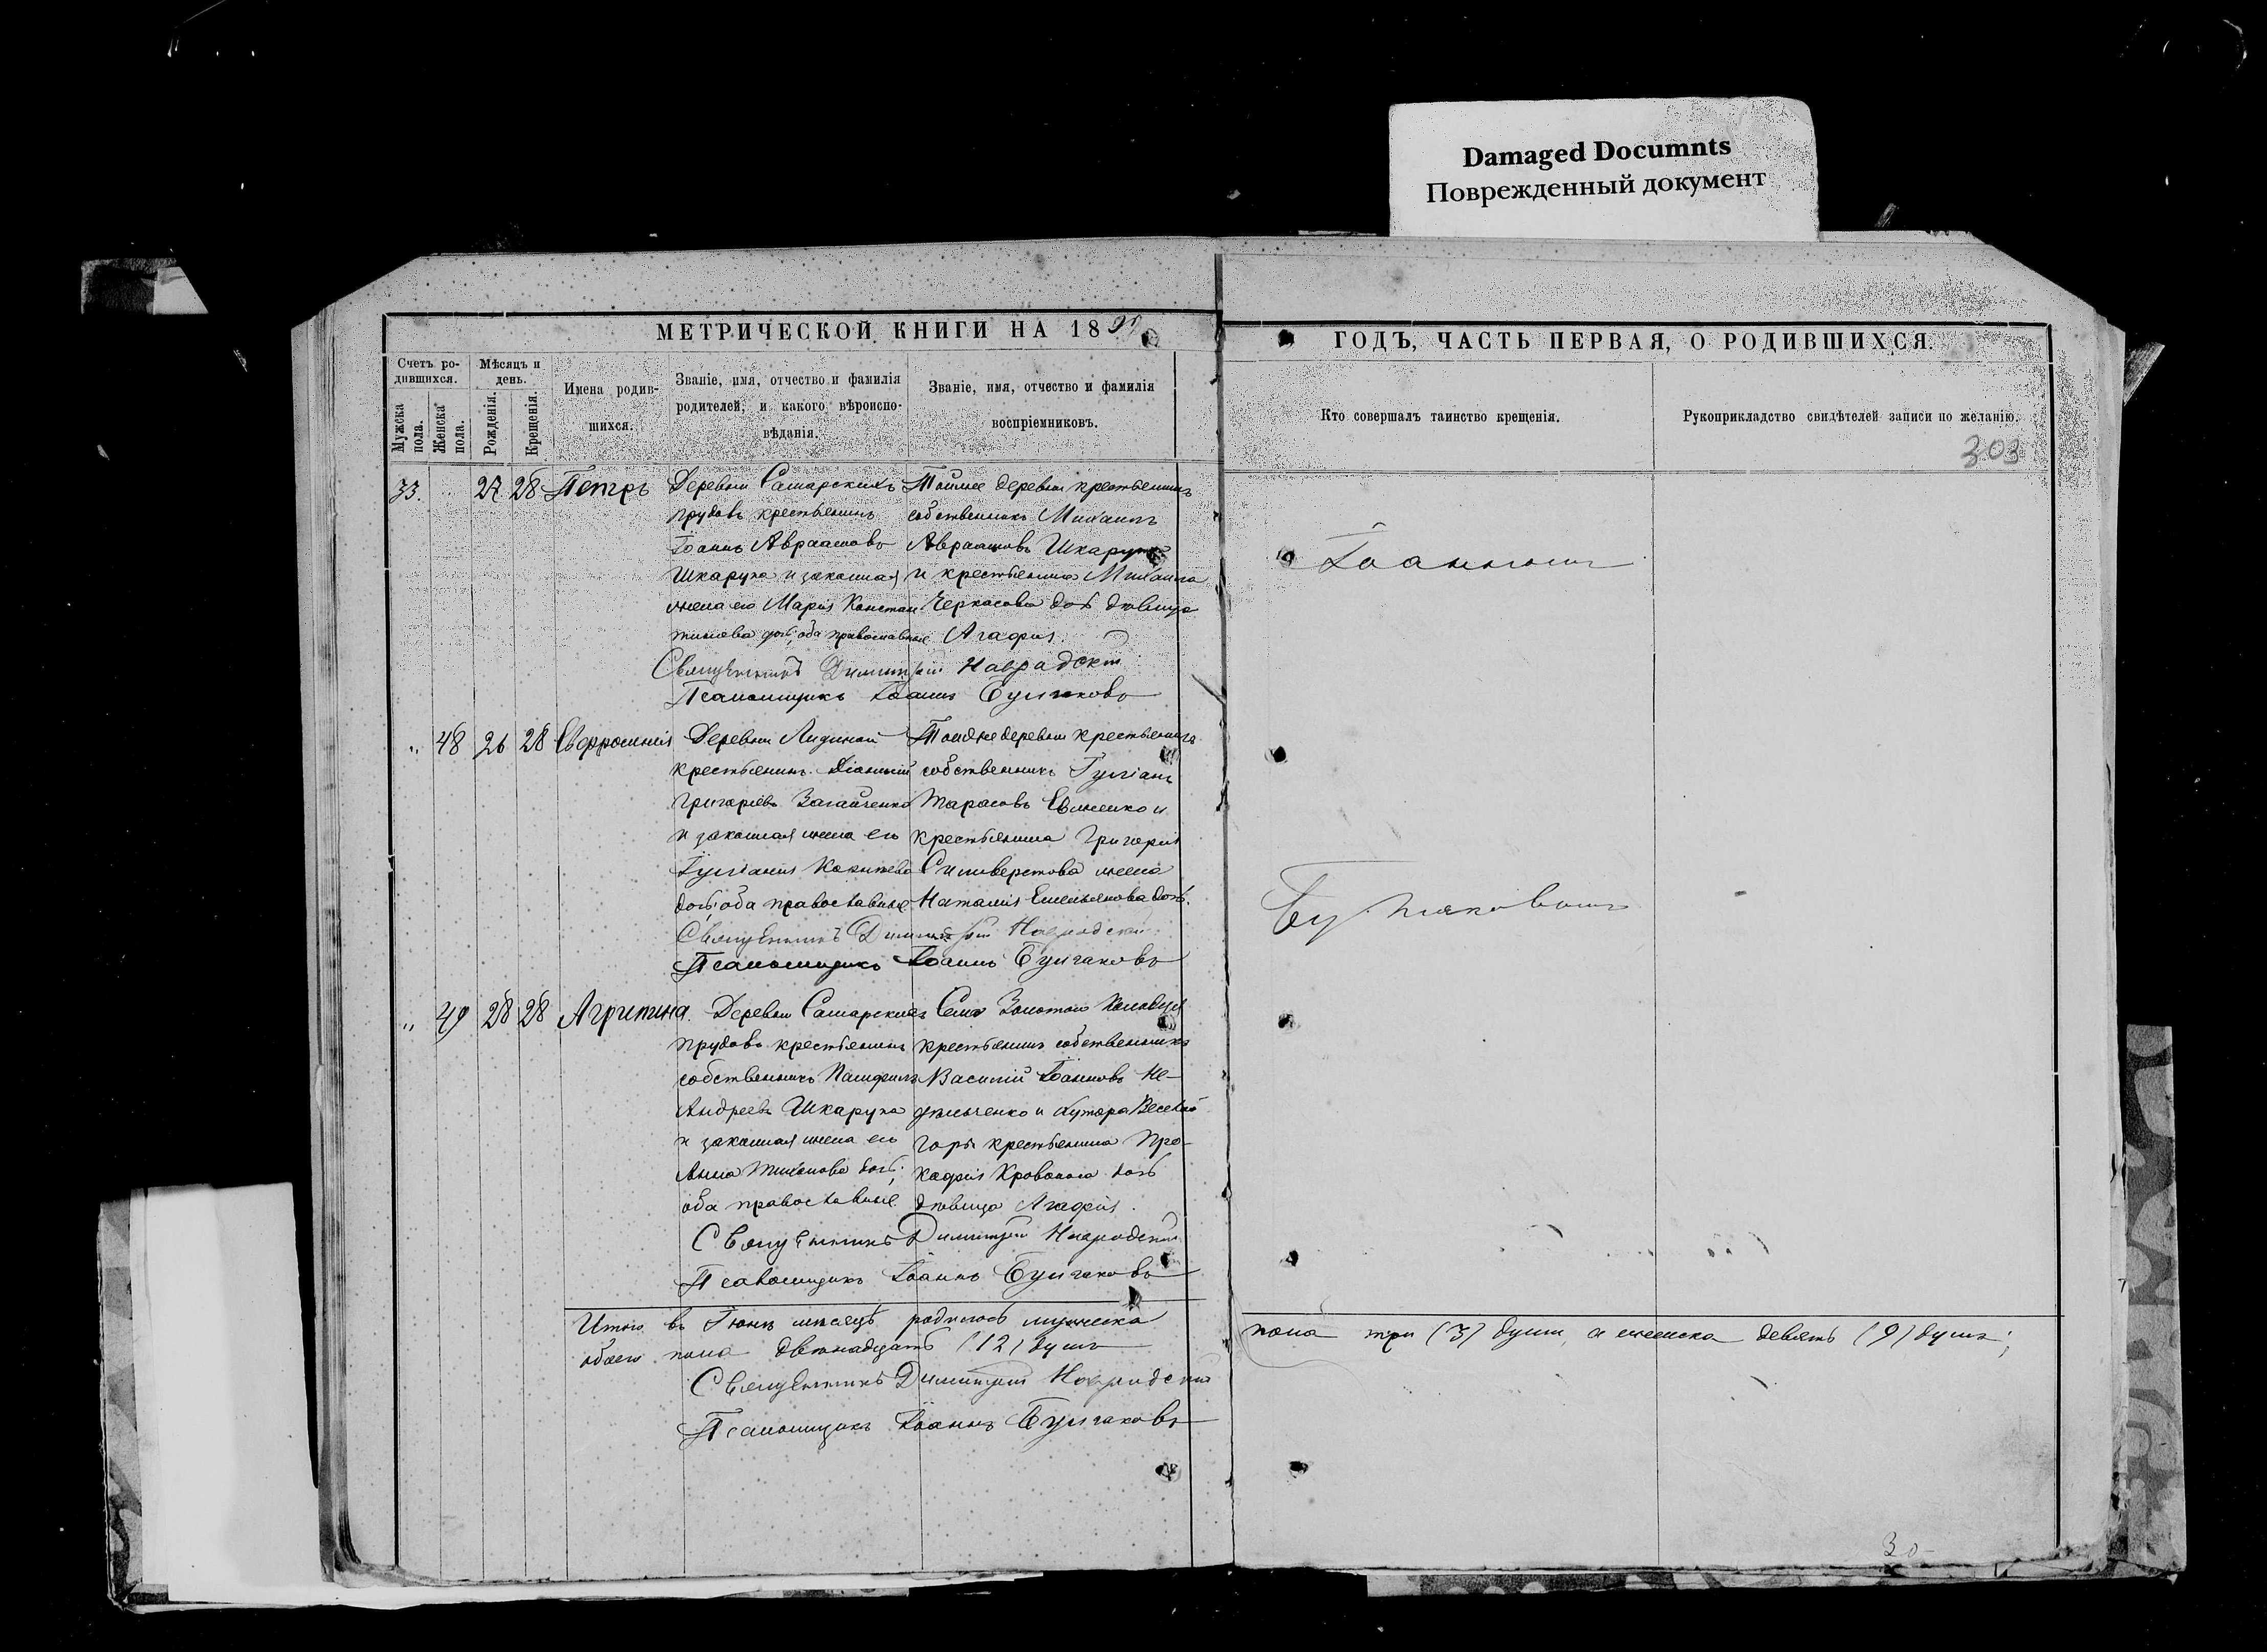 Damaged Documnts
Поврежденный документ
МЕТРИЧЕСКОЙ КНИГИ НА 18
ГОДЪ, ЧАСТЬ ПЕРВАЯ, О РОДИВШИХСЯ.
Счетъ ро-
дившихся.
Мужска
пола.
Женска
пола.
Мѣсяцъ и
день.
Рожденія.
Крещенія.
Имена родив-
шихся.
Званіе, имя, отчество и фамилія
родителей, и какого вѣроиспо-
вѣданія.
Званіе, имя, отчество и фамилія
воспріемниковъ.
Кто совершалъ таинство крещенія.
Рукоприкладство свидѣтелей записи по желанію.
303
33. 27 28 Петръ
Деревни Самарскихъ
прудовъ крестьянинъ
Іоаннъ Авраамовъ
Шкарупа и законная
жена его Марія Констан
тинова дочь; оба православные
Тойже деревни крестьянинъ
собственникъ Михаилъ
Авраамовъ Шкарупа
и крестьянина Михаила
Черкасова дочь дѣвица
Агафія.
Священникъ Димитрій
Псаломщикъ Іоаннъ Булгаковъ
Іоанномъ
„ 48 26 28 Евфросинія
Деревни
крестьянинъ
Григоріевъ
и законная жена его
Іуліанія
дочь; оба православные
Тойже деревни крестьянинъ
собственникъ Іуліанъ
Тарасовъ и
крестьянина Григорія
Сильверстова жена
Наталія Емельянова дочь.
Священникъ Димитрій
Псаломщикъ Іоаннъ Булгаковъ
Булгаковымъ
„ 49 28 28 Агрипина.
Деревни Самарскихъ
прудовъ крестьянинъ
собственникъ Памфилъ
Андреевъ Шкарупа
и законная жена его
Анна Тихонова дочь;
оба православные
Села Золотой Колодезь
крестьянинъ собственникъ
Василій Іоанновъ Не-
дильченко и хутора Веселой
горы крестьянина Про-
кофія дочь
дѣвица Агафія.
Священникъ Димитрій
Псаломщикъ Іоаннъ Булгаковъ
Итого въ Іюнѣ мѣсяцѣ родилось мужеска
пола три (3) души, а женска девять (9) душъ;
обоего пола двѣнадцать (12) душъ
Священникъ Димитрій
Псаломщикъ Іоаннъ Булгаковъ
30